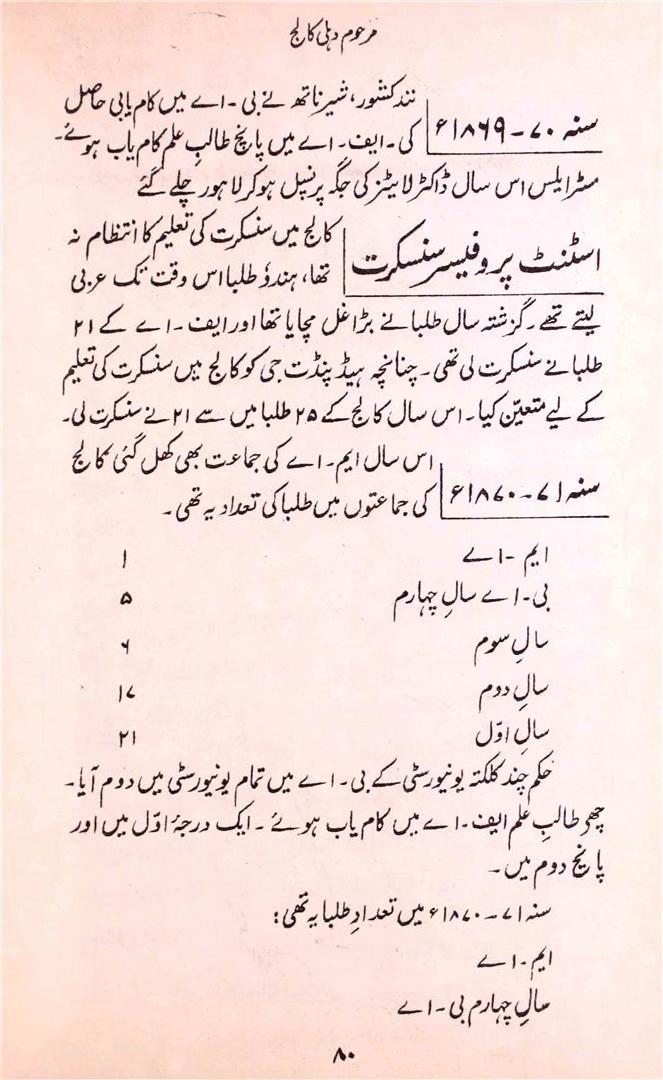 مرحوم دہلی کالج
سنہ ۷۰-۱۸۶۹ء
نند کشور، شیر ناتھ نے بی-اے میں کام یابی حاصل
کی-ایف-اے میں پانچ طالبِ علم کام یاب ہوئے۔
مسٹر ایلس اس سال ڈاکٹر لائٹنر کی جگہ پرنسپل ہوکر لاہور چلے گئے
اسٹنٹ پروفیسر سنسکرت
کالج میں سنسکرت کی تعلیم کا انتظام نہ
تھا، ہندوٗ طلبا اس وقت تک عربی
لیتے تھے۔ گزشتہ سال طلبا نے بڑا غل مچایا تھا اور ایف-اے کے ۲۱
طلبا نے سنسکرت لی تھی۔ چنانچہ ہیڈ پنڈت جی کو کالج میں سنسکرت کی تعلیم
کے لیے متعیّن کیا۔ اس سال کالج کے ۲۵ طلبا میں سے ۲۱ نے سنسکرت لی۔
سنہ ۷۱-۱۸۷۰ء
اس سال ایم-اے کی جماعت بھی کھل گئی کالج
کی جماعتوں میں طلبا کی تعداد یہ تھی۔
ایم-اے ۱
بی-اے سالِ چہارم ۵
سالِ سوم ۶
سالِ دوم ۱۷
سالِ اوّل ۲۱
حکم چند کلکتہ یونیورسٹی کے بی-اے میں تمام یونیورسٹی میں دوم آیا۔
چھ طالبِ علم ایف-اے میں کام یاب ہوئے۔ ایک درجۂ اوّل میں اور
پانچ دوم میں۔
سنہ ۷۱-۱۸۷۰ء میں تعدادِ طلبا یہ تھی:
ایم-اے
سالِ چہارم بی-اے
۸۰